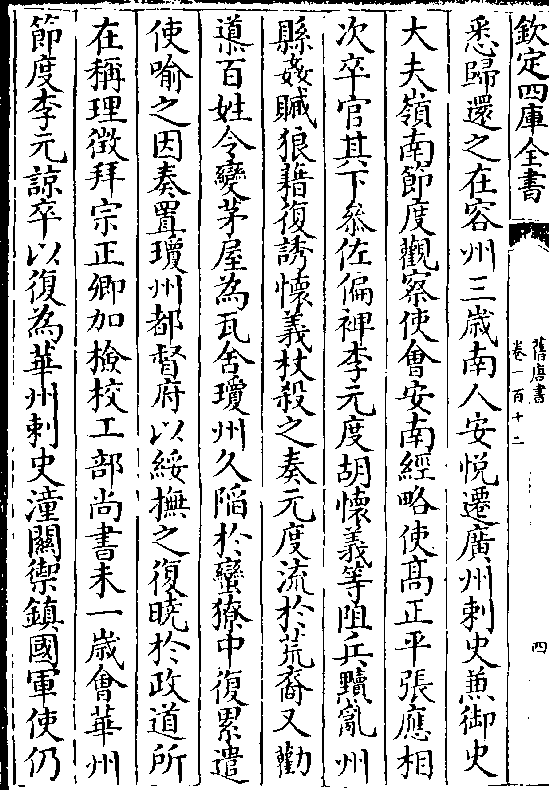 欽定四庫全書
舊唐書
卷一百十二
四
悉歸還之在容州三歲南人安悅遷廣州刺史兼御史
大夫嶺南節度觀察使會安南經略使髙正平張應相
次卒官其下叅佐偏裨李元度胡懷義等阻兵黷亂州
縣姦贓狼藉復誘懷義杖殺之奏元度流於荒裔又勸
導百姓令變茅屋為瓦舍瓊州久陷於蠻獠中復累遣
使喻之因奏置瓊州都督府以綏撫之復曉於政道所
在稱理徴拜宗正卿加檢校工部尚書未一歲會華州
節度李元諒卒以復為華州刺史潼關禦鎮國軍使仍